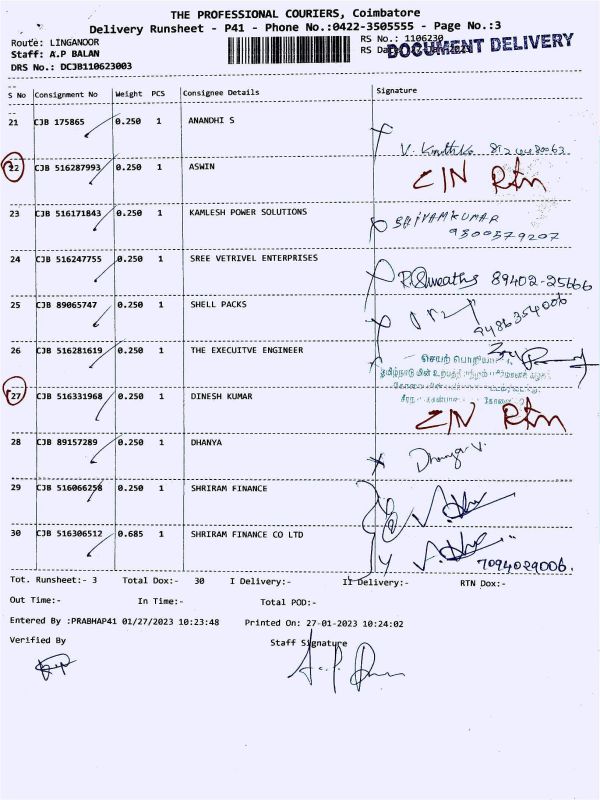 THE PROFESSIONAL COURIERS, Coimbatore
Delivery Runsheet - P41 - Phone No.:0422-3505555 - Page No.:3
Route: LINGANOOR
RS No.: 1106230
DOCUMENT DELIVERY
Staff: A.P BALAN
DRS No.: DCJB110623003
S No Consignment No Weight PCS Consignee Details Signature
21 CJB 175865 0.250 1 ANANDHI S
22 CJB 516287993 0.250 1 ASWIN C/N Rtn
23 CJB 516171843 0.250 1 KAMLESH POWER SOLUTIONS SHIYAMKUMAR
9500579207
24 CJB 516247755 0.250 1 SREE VETRIVEL ENTERPRISES 89402-25666
25 CJB 89065747 0.250 1 SHELL PACKS 9486354006
26 CJB 516281619 0.250 1 THE EXECUITVE ENGINEER
27 CJB 516331968 0.250 1 DINESH KUMAR C/N Rtn
28 CJB 89157289 0.250 1 DHANYA Dhanya V.
29 CJB 516066258 0.250 1 SHRIRAM FINANCE
30 CJB 516306512 0.685 1 SHRIRAM FINANCE CO LTD 7094029006.
Tot. Runsheet:- 3 Total Dox:- 30 I Delivery:- II Delivery:- RTN Dox:-
Out Time:- In Time:- Total POD:-
Entered By :PRABHAP41 01/27/2023 10:23:48 Printed On: 27-01-2023 10:24:02
Verified By Staff Signature